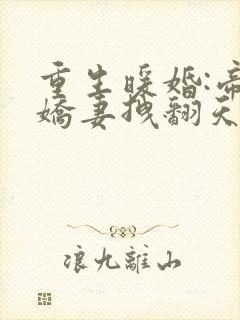 重生暖婚:帝
娇妻拽翻天
浪九離山